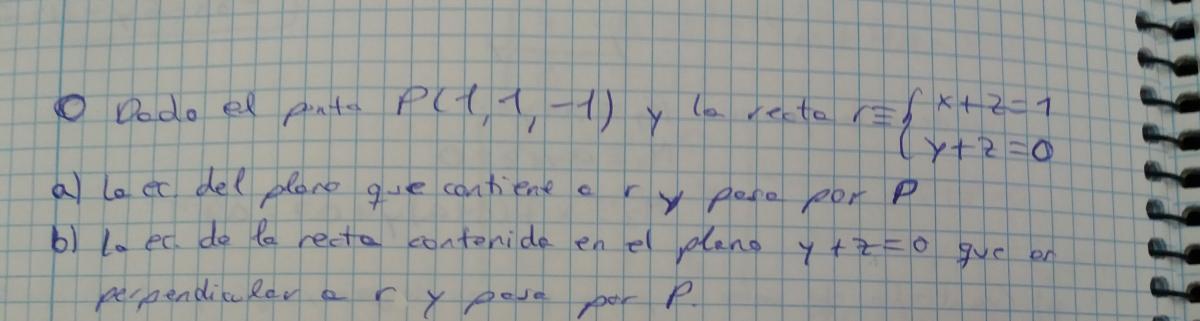 Dado el punto P(1,1,-1) y la recta r≡{x+z=1
y+z=0
a) La ec. del plano que contiene a r y pasa por P
b) La ec. de la recta contenida en el plano y+z=0 que es
perpendicular a r y pasa por P.